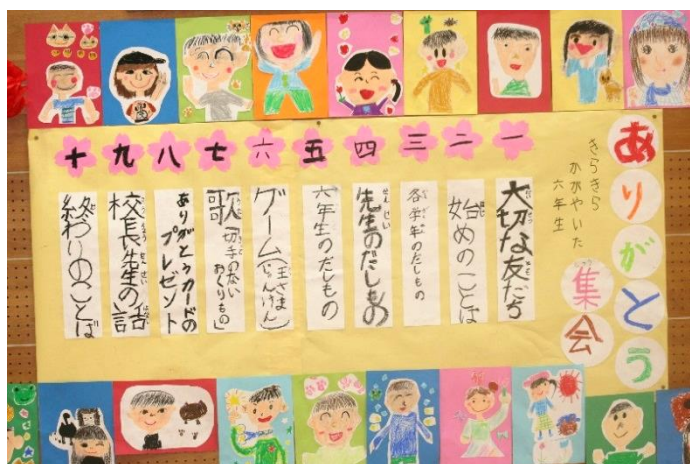 ありがとう
集会
きらきら
かがやいた
六年生
一
大切な友だち
二
始めのことば
三
各学年のだしもの
四
先生のだしもの
五
六年生のだしもの
六
ゲーム(王さまじゃんけん)
七
歌「切手のない
おくりもの」
八
ありがとうカードの
プレゼント
九
校長先生の話
十
終わりのことば